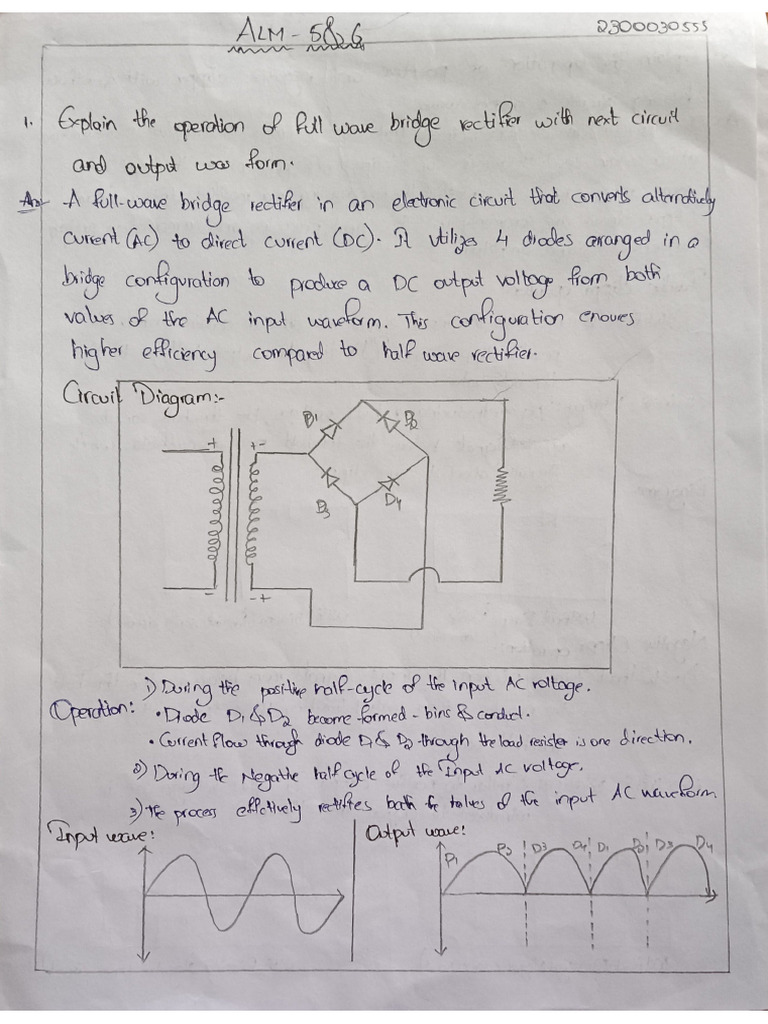 ALM - 5&6
2300030555
1. Explain the operation of full wave bridge rectifier with next circuit
and output was form.
Ans- A full-wave bridge rectifier in an electronic circuit that converts alternatively
current (AC) to direct current (DC). It utilizes 4 diodes arranged in a
bridge configuration to produce a DC output voltage from both
values of the AC input waveform. This configuration enoures
higher efficiency compared to half wave rectifier.
Circuit Diagram:-
D1
D2
+
+-
D3
D4
-
-+
1) During the positive half-cycle of the input AC voltage.
Operation: • Diode D1 & D2 become formed - bins & conduct.
• Current flow through diode D1 & D2 through the load resister is one direction.
2) During the Negative half cycle of the Input AC voltage.
3) the process effectively rectifies both the halves of the input AC waveform
Input wave:
Output wave:
D1 D2 D3 D4 D1 D2 D3 D4